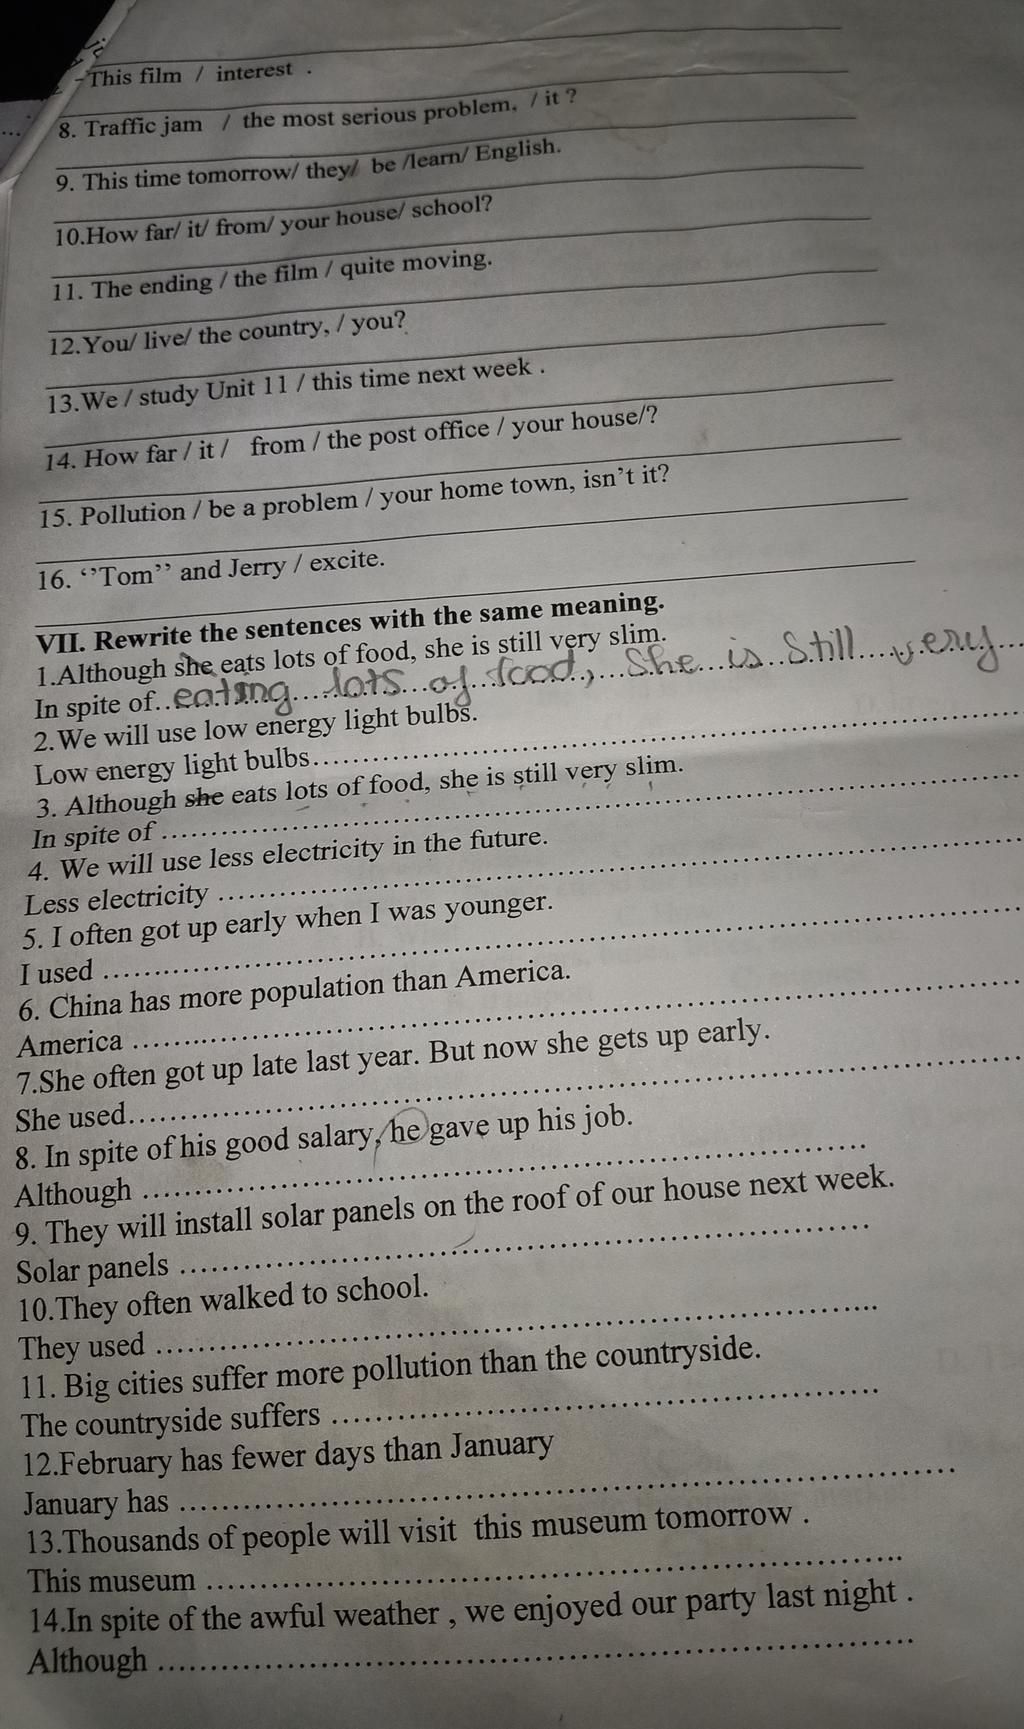 This film / interest .
8. Traffic jam / the most serious problem, / it ?
9. This time tomorrow/ they/ be /learn/ English.
10.How far/ it/ from/ your house/ school?
11. The ending / the film / quite moving.
12.You/ live/ the country, / you?
13.We / study Unit 11 / this time next week .
14. How far / it / from / the post office / your house/?
15. Pollution / be a problem / your home town, isn't it?
16. ‘’Tom’’ and Jerry / excite.
VII. Rewrite the sentences with the same meaning.
1.Although she eats lots of food, she is still very slim.
In spite of..eating....lots...of...food,...She...is..Still....very...
2.We will use low energy light bulbs.
Low energy light bulbs..............................
3. Although she eats lots of food, she is still very slim.
In spite of ..............................
4. We will use less electricity in the future.
Less electricity ..............................
5. I often got up early when I was younger.
I used ..............................
6. China has more population than America.
America ..............................
7.She often got up late last year. But now she gets up early.
She used..............................
8. In spite of his good salary, he gave up his job.
Although ..............................
9. They will install solar panels on the roof of our house next week.
Solar panels ..............................
10.They often walked to school.
They used ..............................
11. Big cities suffer more pollution than the countryside.
The countryside suffers ..............................
12.February has fewer days than January
January has ..............................
13.Thousands of people will visit this museum tomorrow .
This museum ..............................
14.In spite of the awful weather , we enjoyed our party last night .
Although ..............................